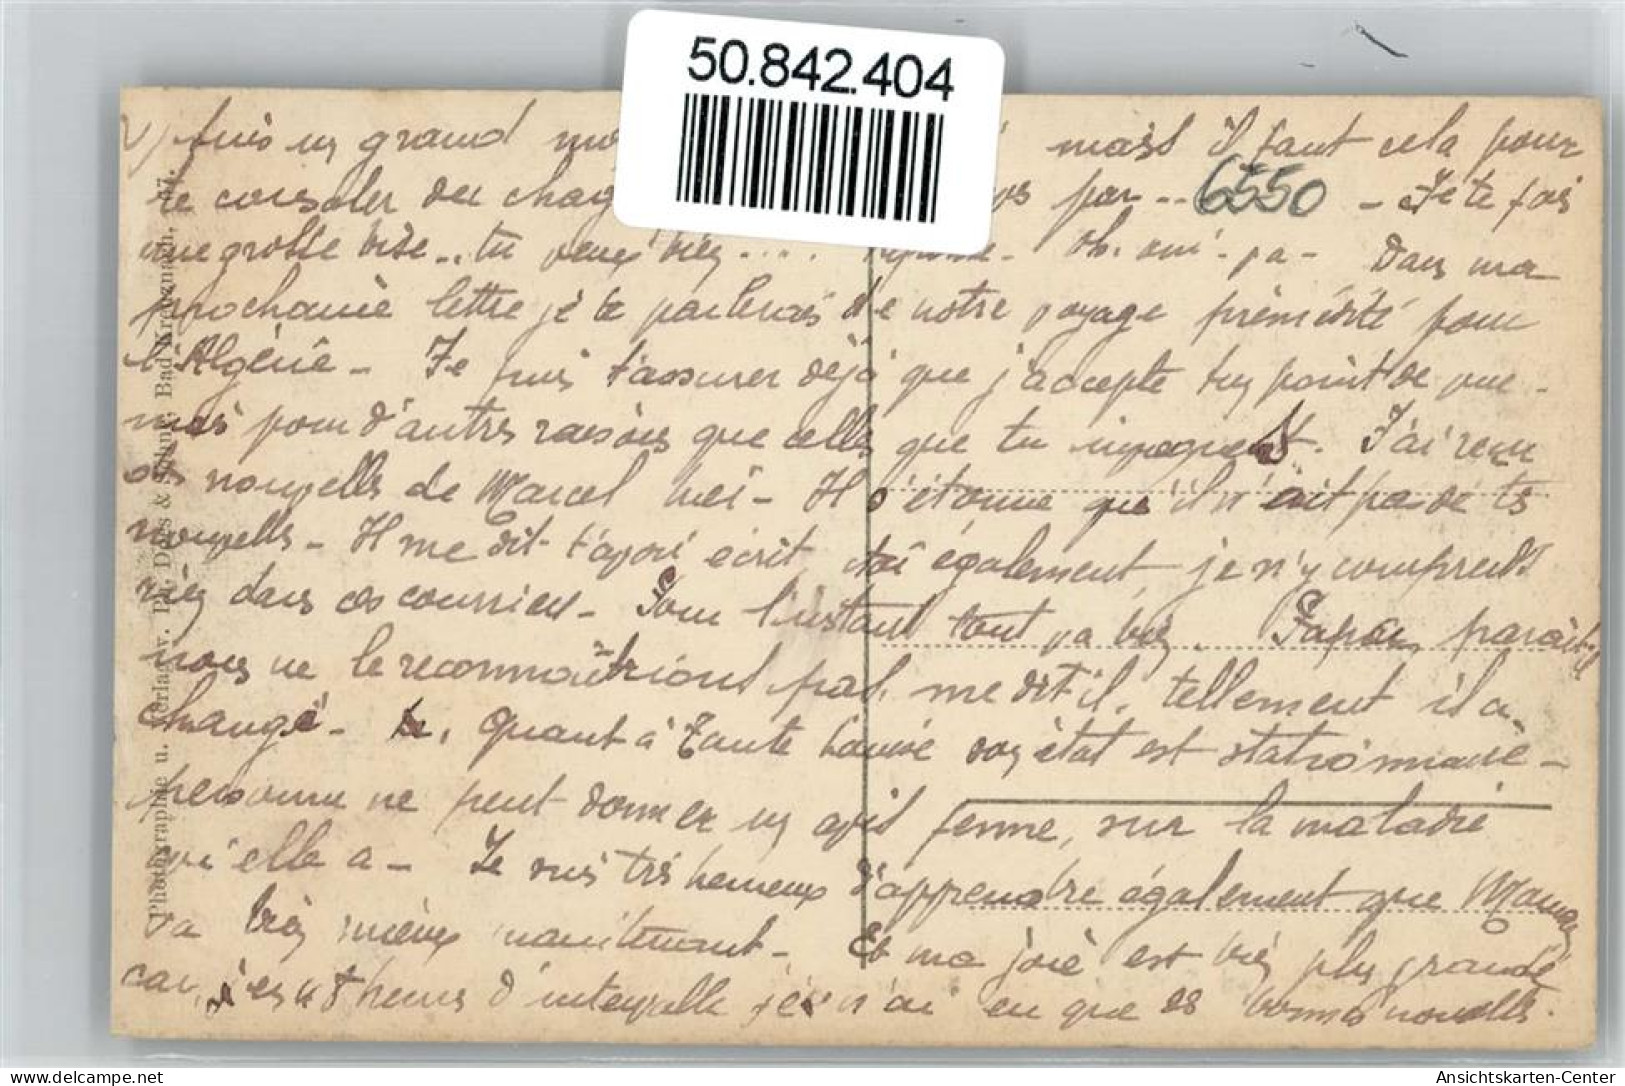 50.842.404
6550
2) puis un grand mais il faut cela pour
te consoler du par .. - Je te fais
une grosse bise .. tu veux bien .... Oh. oui. ça - Dans ma
prochaine lettre je te parlerais de notre voyage prémédité pour
l'Algérie - Je puis t'assurer déjà que j'accepte ton point de vue -
mais pour d'autres raisons que celles que tu . J'ai reçu
des nouvelles de Marcel hier - Il s'étonne qu'il n'ait pas de tes
nouvelles - Il me dit t'avoir écrit, toi également, je n'y comprends
rien dans ces courriers - Pour l'instant tout va bien. Papa, parait-il
nous ne le reconnaîtrions pas, me dit il, tellement il a
changé - quant à Tante Louise son état est stationnaire -
personne ne peut donner un avis ferme, sur la maladie
qu'elle a - Je suis très heureux d'apprendre également que Maman
va bien mieux maintenant - Et ma joie est bien plus grande
car, heures d'intervalle je n'ai eu que de bonnes nouvelles.
Photographie u. Verlag v. Ph. D & Bad Kreuznach. 157.
Ansichtskarten-Center